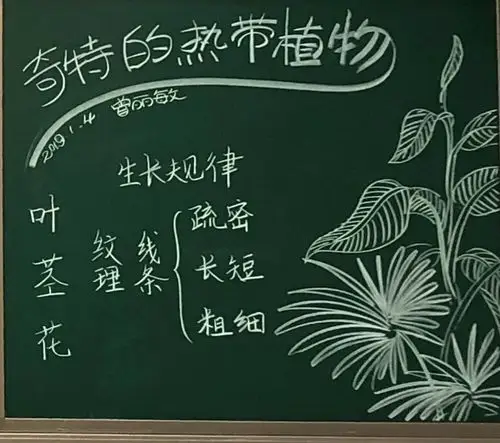 奇特的热带植物
2019.1.4 曾丽敏
生长规律
叶茎花
纹理
线条
疏密
长短
粗细